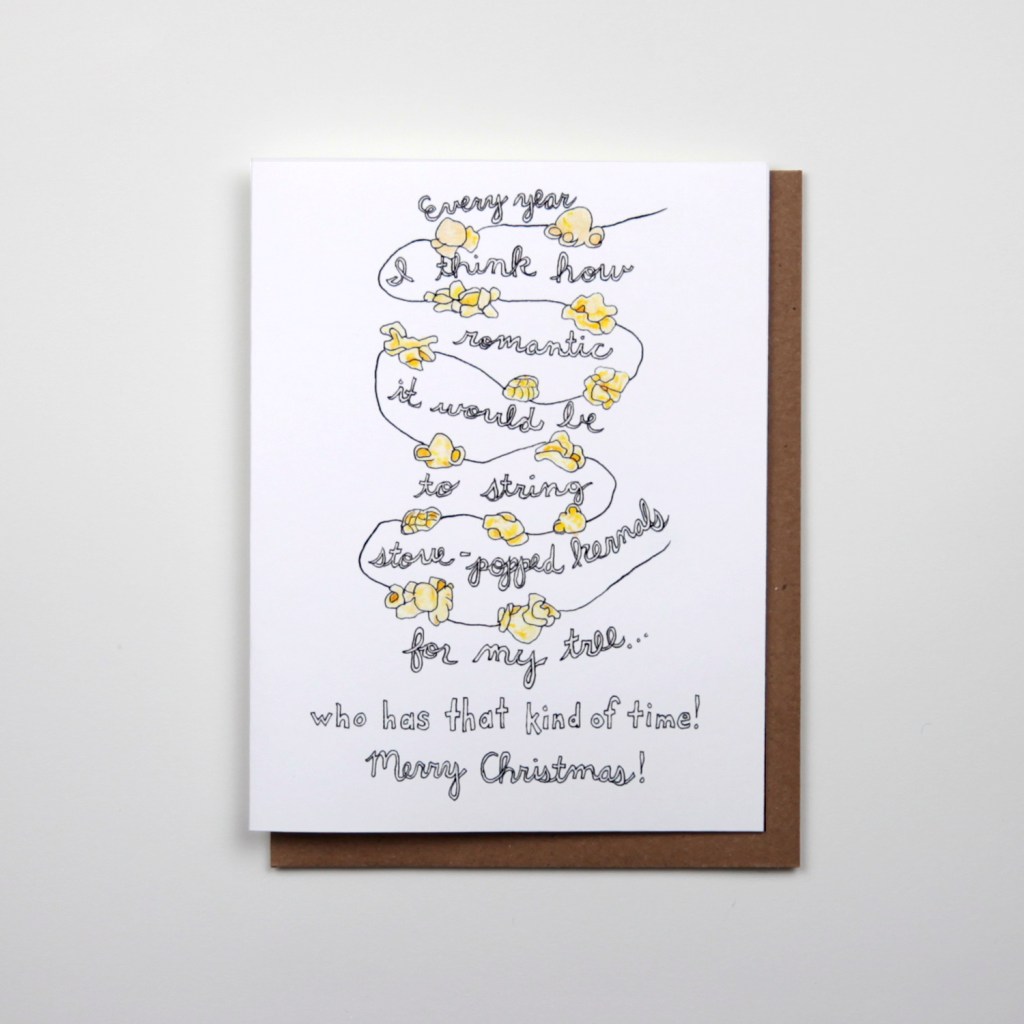 Every year
I think how
romantic
it would be
to string
stove-popped kernals
for my tree...
who has that kind of time!
Merry Christmas!